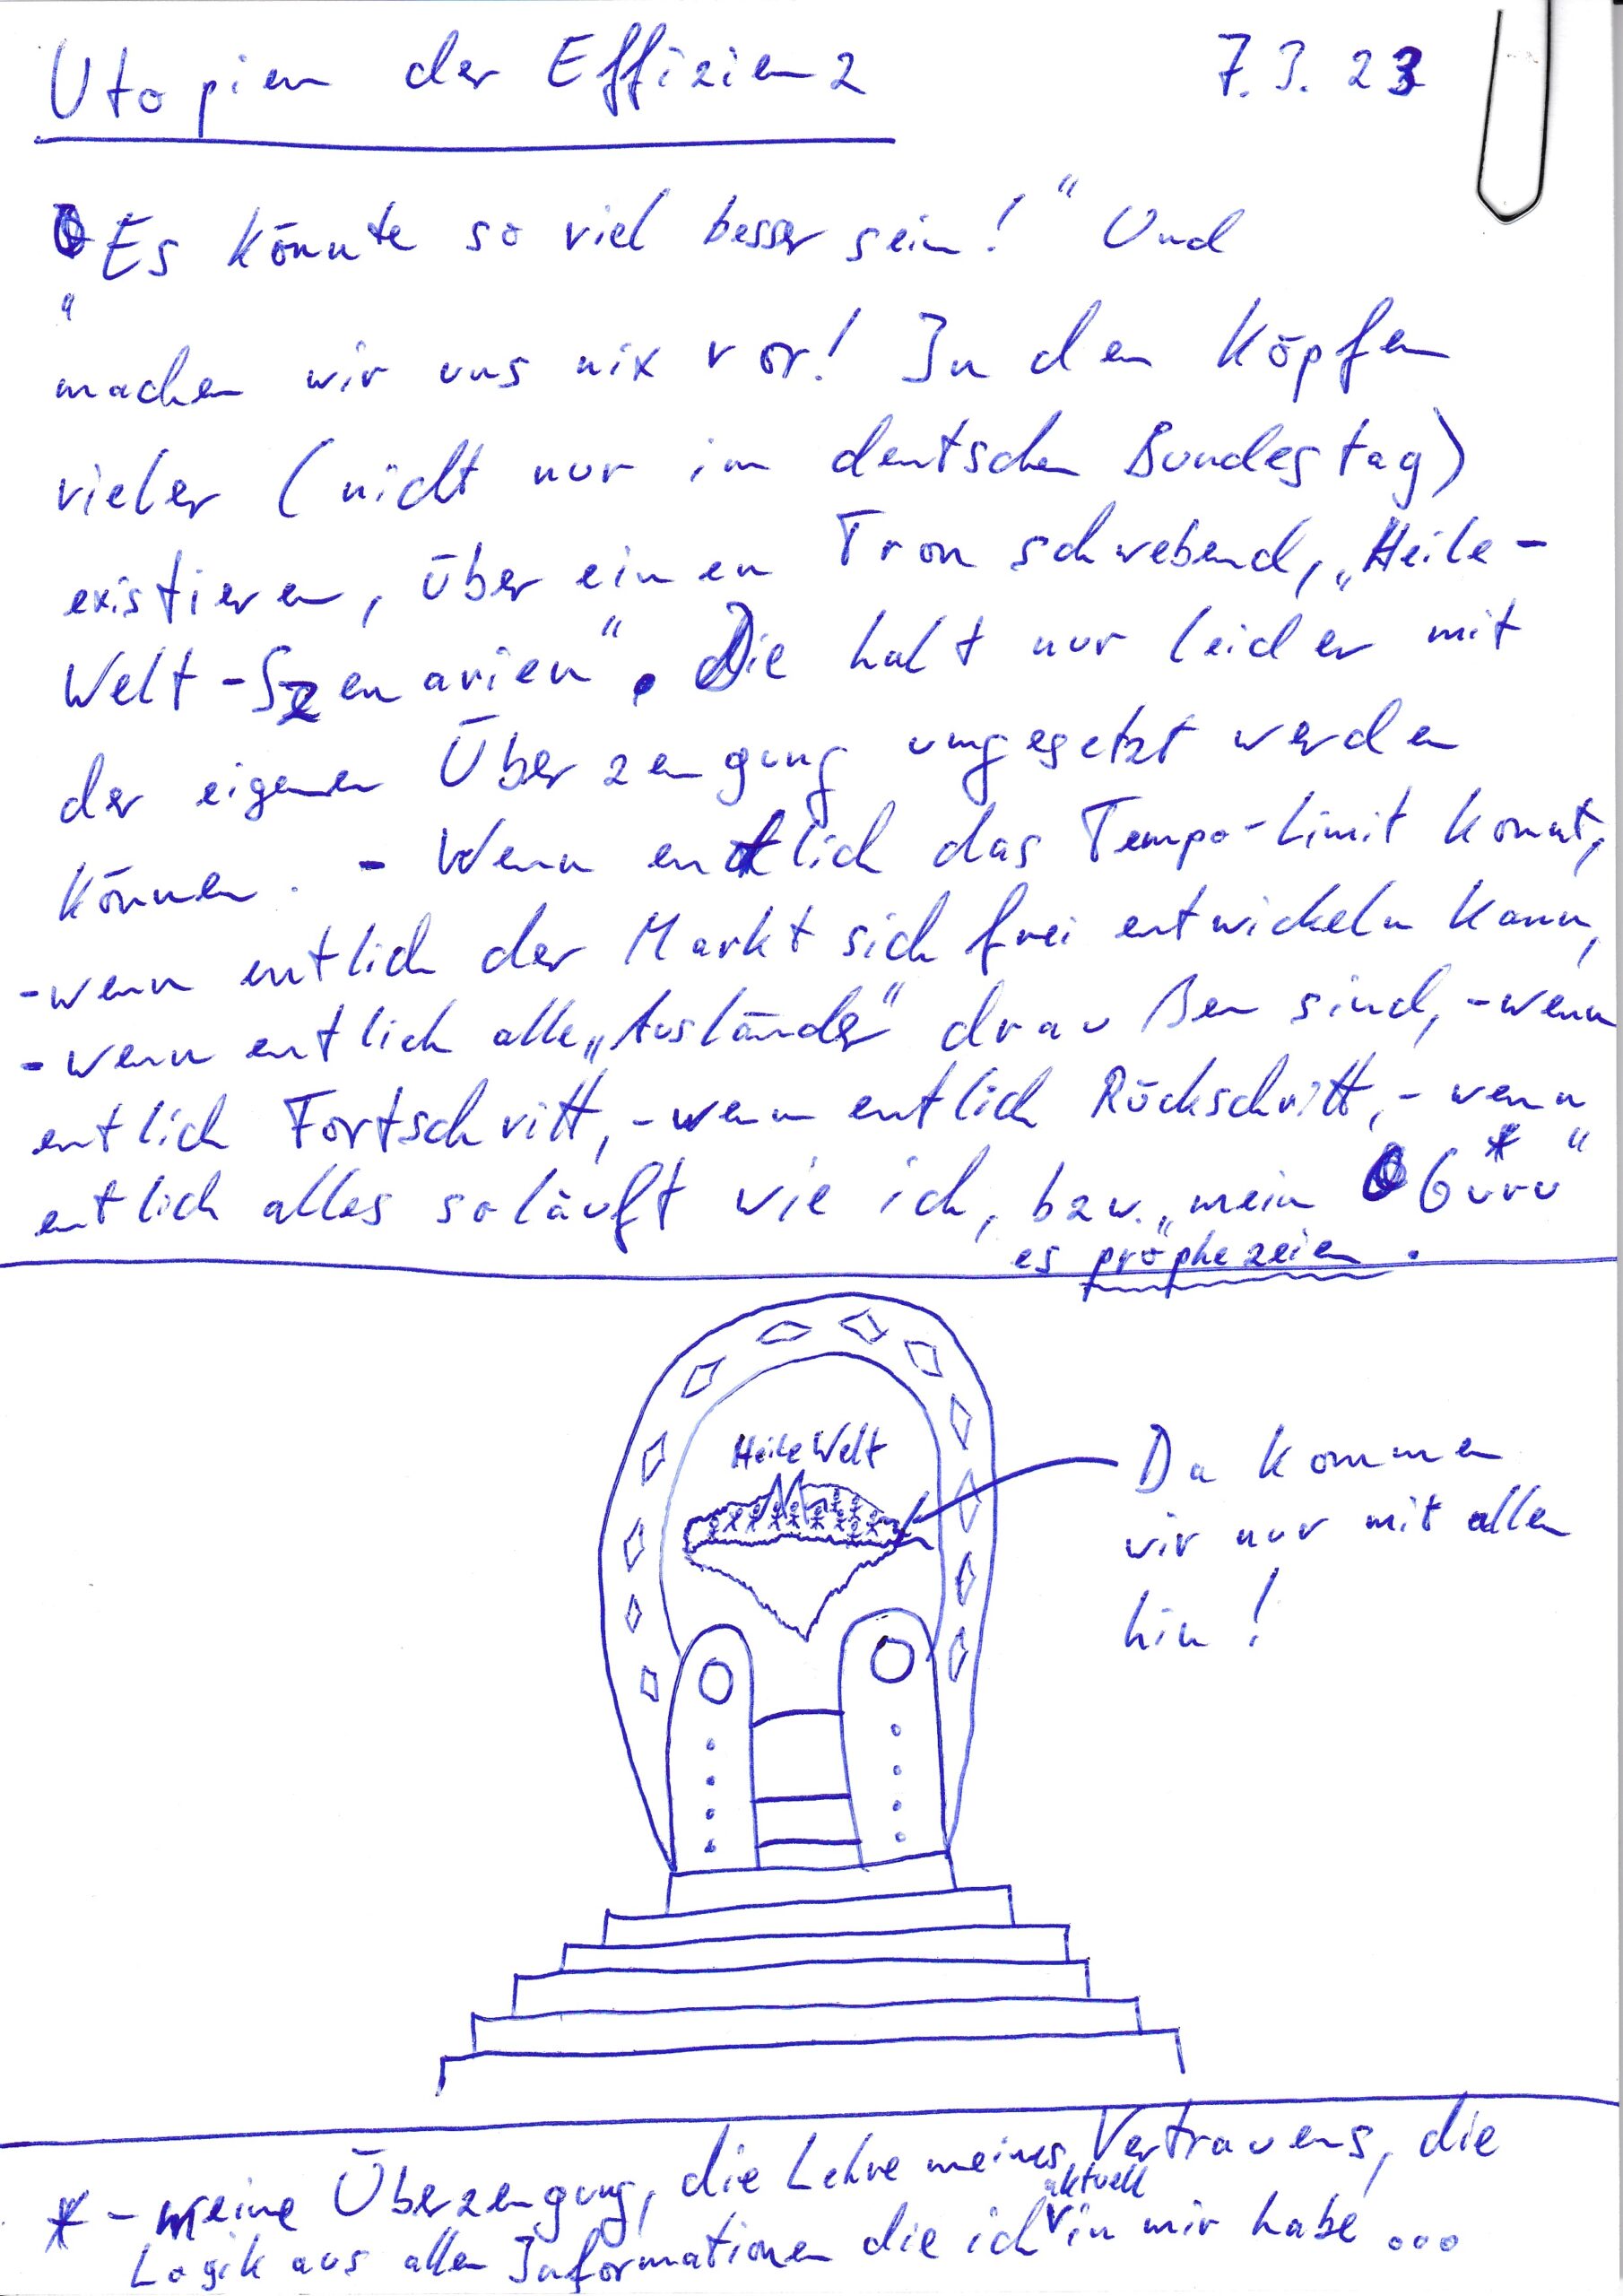 Utopien der Effizienz 7.3.23
"Es könnte so viel besser sein!" Und
machen wir uns nix vor! In den Köpfen
vieler (nicht nur im deutschen Bundestag)
existieren, über einen Tron schwebend, „Heile-
Welt-Szenarien". Die halt nur leider mit
der eigenen Überzeugung umgesetzt werden
können. - Wenn entlich das Tempo-Limit kommt,
- wenn entlich der Markt sich frei entwickeln kann,
- wenn entlich alle „Ausländer" draußen sind, - wenn
entlich Fortschritt, - wenn entlich Rückschritt, - wenn
entlich alles so läuft wie ich, bzw. „mein Guru*"
es prophezeien.
Heile Welt
Da kommen
wir nur mit allen
hin!
* - meine Überzeugung, die Lehre meines Vertrauens, die
Logik aus allen Informationen die ich aktuell in mir habe ...